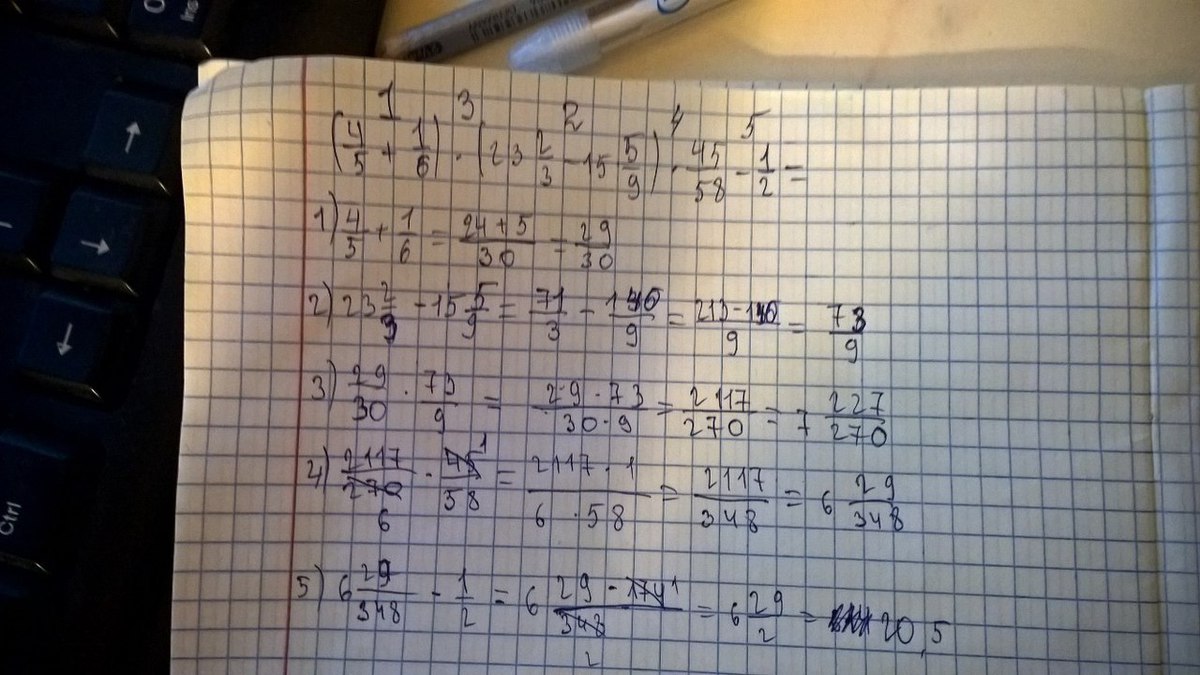 1 3 2 4 5
(4/5 + 1/6) · (23 2/3 - 15 5/9) · 45/58 - 1/2 =
1) 4/5 + 1/6 = (24+5)/30 = 29/30
2) 23 2/3 - 15 5/9 = 71/3 - 140/9 = (213-140)/9 = 73/9
3) 29/30 · 73/9 = (29·73)/(30·9) = 2117/270 = 7 227/270
4) 2117/270 6 · 45 1/58 = (2117·1)/(6·58) = 2117/348 = 6 29/348
5) 6 29/348 - 1/2 = 6 (29-174 1)/348 2 = 6 29/2 = 20,5
Ctrl
↑
→
↓